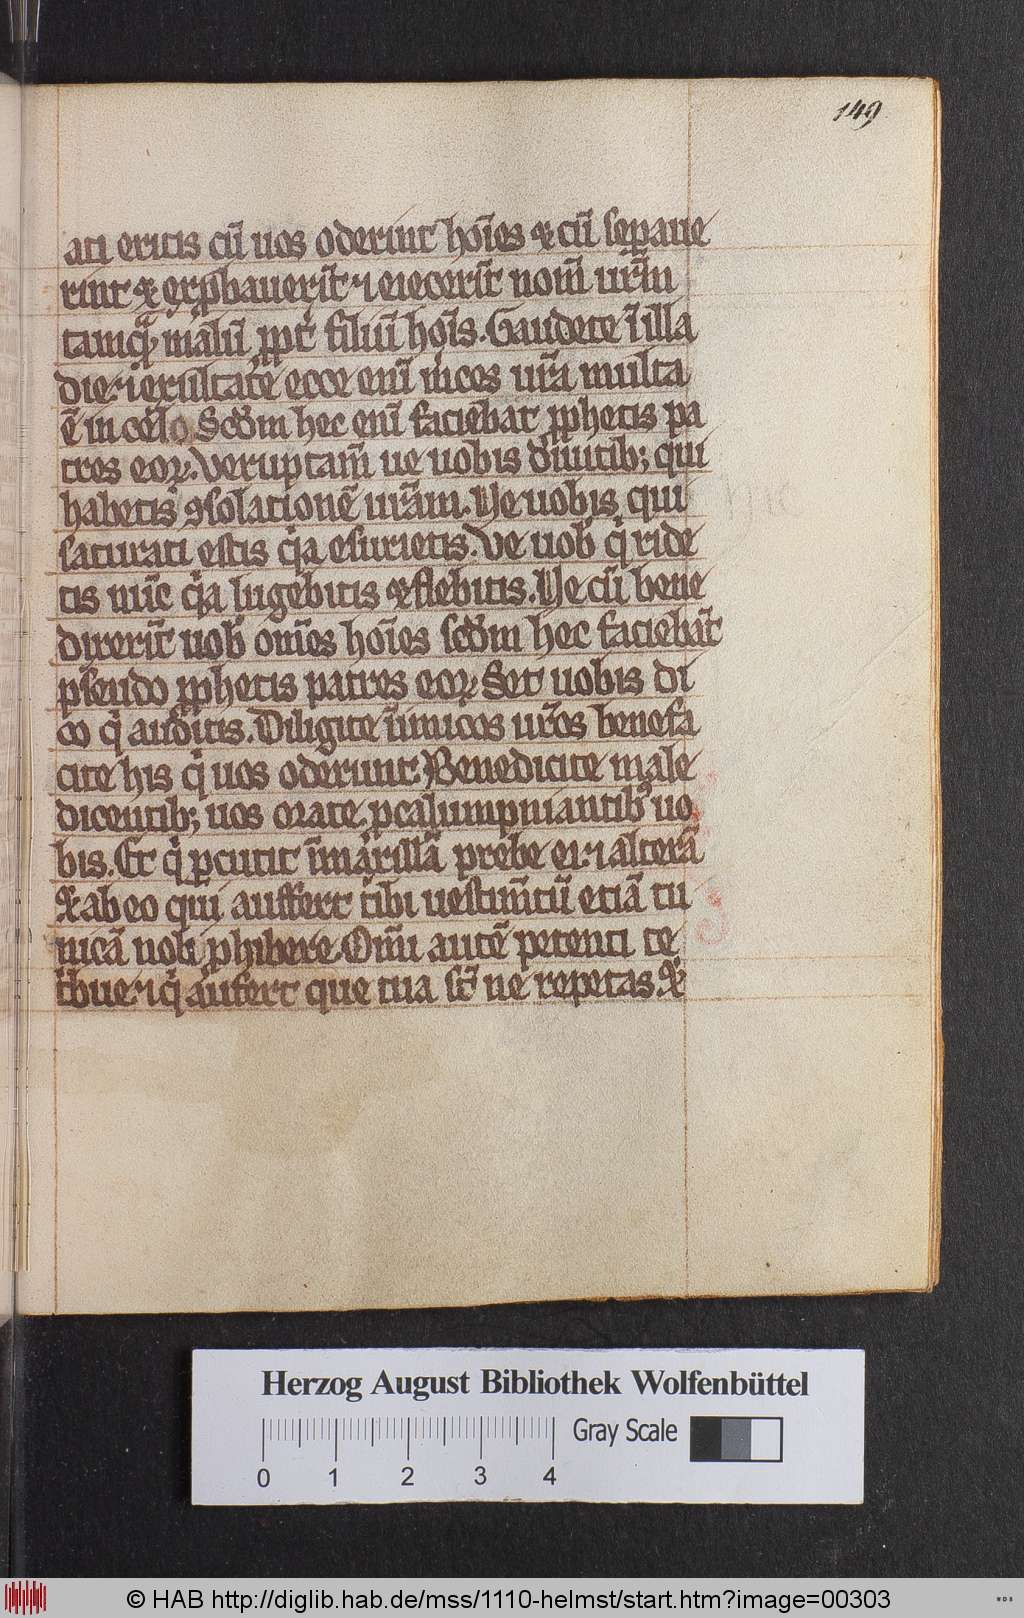 149
ati eritis cū uos oderint hoīes ⁊ cū sepaue
rint ⁊ exp̱bauerīt ⁊ eiecerīt nom̄ ur̄m
tamqᷓ malū ꝓpt̄ filiū hoīs. Gaudete ī illa
die. ⁊ exultate ecce eni̅ m̄ces ur̄a multa
ē in celo Scd̄m hec eni̅ faciebāt ꝓphetis pa
tres eoꝝ. Veruptam̄ ue uobis diuitib; qui
habetis ꝯsolationē ur̄am. Ve uobis qui
saturati estis qͥa esurietis. Ve uob̄ qͥ ride
tis nūc qͥa lugebitis ⁊ flebitis. Ve cū bene
dixerīt uob̄ om̄es hoīes scd̄m hec faciebāt
pseudo ꝓphetis patres eoꝝ Set uobis di
co qͥ auditis. Diligite inimicos ur̄os benefa
cite his qͥ uos oderunt. Benedicite male
dicentib; uos orate ꝓ calumpniantibꝰ uo
bis. Et qͥ ꝑcutit ī maxillā prebe ei. ⁊ alterā
⁊ ab eo qui auffert tibi uestim̄tū etiā tu
nicā noli ꝓhibere. Om̄i autē petenti te
tͥbue. ⁊ qͥ aufert que tua st̄ ne repetas. ⁊
Herzog August Bibliothek Wolfenbüttel
Gray Scale
0 1 2 3 4
© HAB http://diglib.hab.de/mss/1110-helmst/start.htm?image=00303